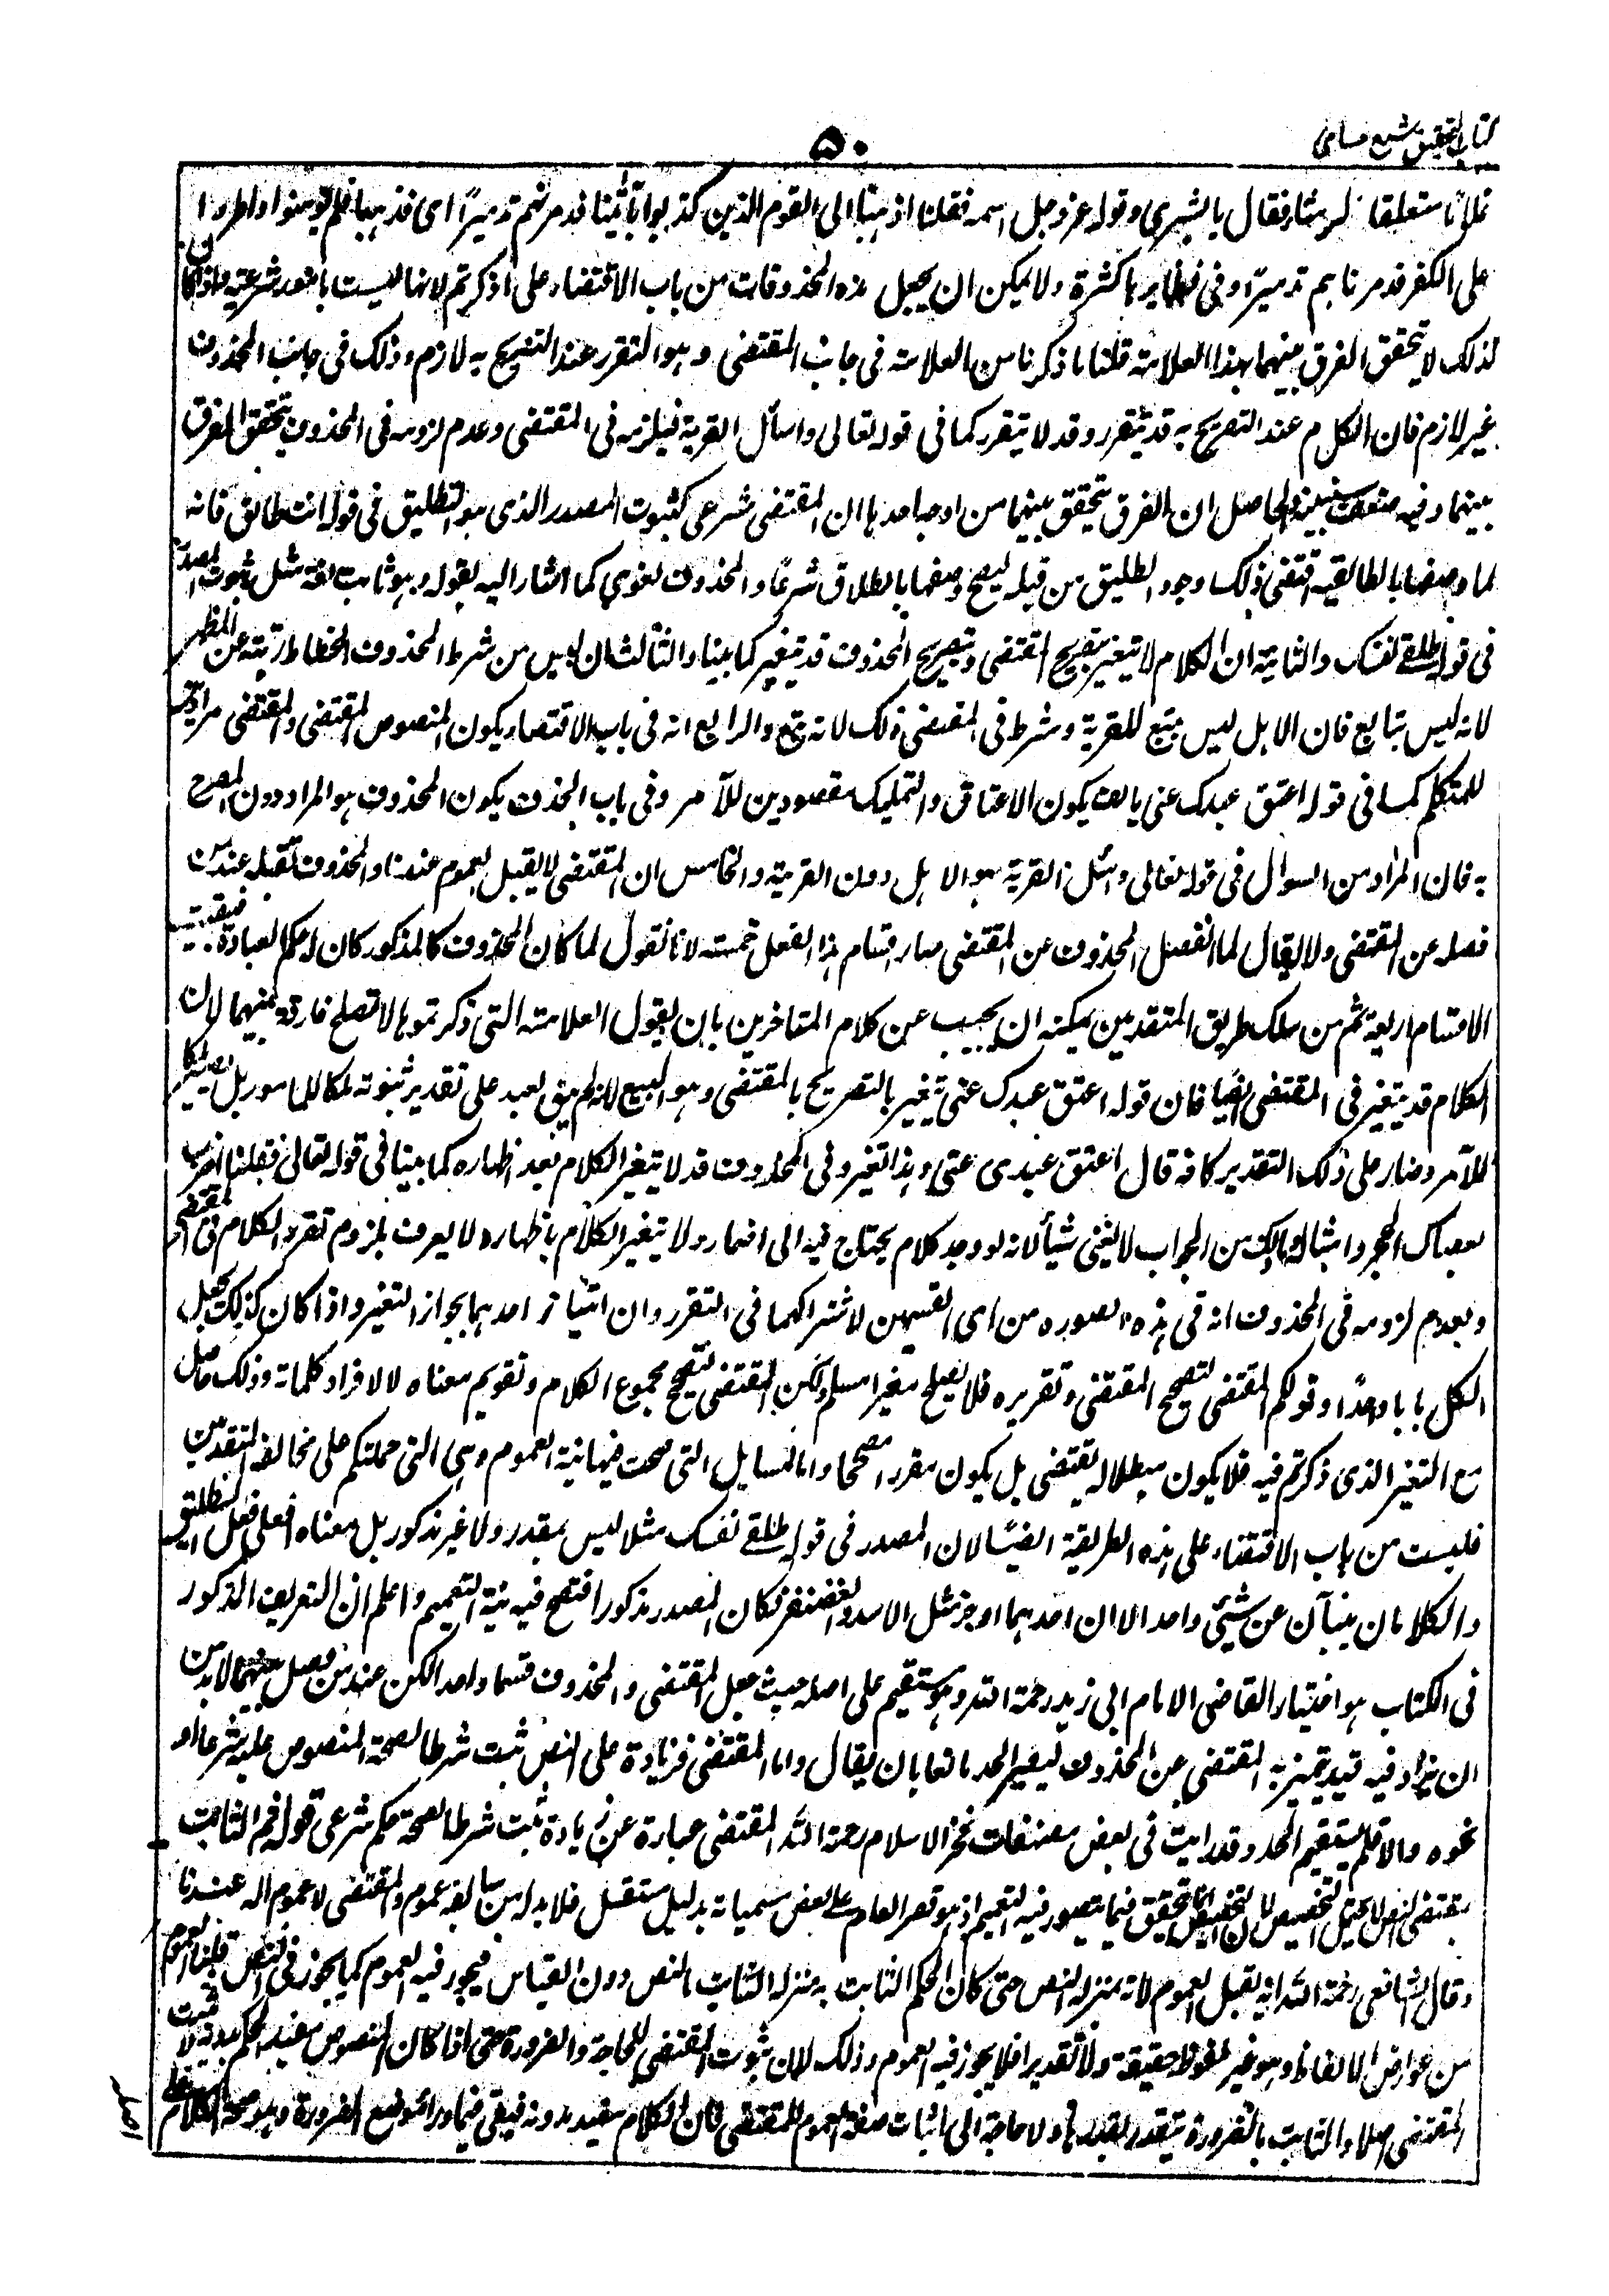 كتاب التحقيق شرح حسامى
۵۰
متعلقا فقال يا بشرى وقوله عز وجل اسمه فقلنا اذهبا الى القوم الذين كذبوا بآياتنا فدمرناهم تدميرًا اى فذهبا فلم يؤمنوا واصروا
على الكفر فدمرناهم تدميرًا وفى نظايرها كثرة ولا يمكن ان يجعل هذه المحذوفات من باب الاقتضاء على ما ذكرتم لانها ليست بامور شرعية واذا كان
كذلك لا يتحقق الفرق بينهما بهذا العلامة قلنا ما ذكرنا من العلامة فى جانب المقتضى وهو التقرر عند التصريح به لازم وذلك فى جانب المحذوف
غير لازم فان الكلام عند التصريح به قد يتقرر وقد لا يتقرر كما فى قوله تعالى واسأل القرية فيلزمه فى المقتضى وعدم لزومه فى المحذوف يتحقق الفرق
بينهما وفيه ضعف والحاصل ان الفرق يتحقق بينهما من اوجه احدها ان المقتضى شرعى كثبوت المصدر الذى هو التطليق فى قوله انت طالق فانه
لما وصفها بالطالقية اقتضى ذلك وجود تطليق من قبله ليصح وصفها بالطلاق شرعًا والمحذوف لغوي كما اشار اليه بقوله وهو ثابت لغة مثل ثبوت المصدر
فى قوله طلقى نفسك والثانية ان الكلام لا يتغير بتصريح المقتضى وبتصريح المحذوف قد يتغير كما بينا والثالث ان ليس من شرط المحذوف انحطاط رتبته عن المظهر
لانه ليس بتابع فان الاهل ليس بتبع للقرية وشرط فى المقتضى ذلك لانه تبع والرابع انه فى باب الاقتضاء يكون المنصوص المقتضى والمقتضى مرادين
للمتكلم كما فى قوله اعتق عبدك عنى بالف يكون الاعتاق والتمليك مقصودين للآمر وفى باب الحذف يكون المحذوف هو المراد دون المصرح
به فان المراد من السوال فى قوله تعالى واسئل القرية هو الاهل دون القرية والخامس ان المقتضى لا يقبل العموم عندنا والمحذوف يقبله عند من
فصله عن المقتضى ولا يقال لما انفصل المحذوف عن المقتضى صار اقسام هذا الفصل خمسة لانا نقول لما كان المحذوف كالمذكور كان له حكم العبارة فبقيت
الاقسام اربعة ثم من سلك طريق المتقدمين يمكنه ان يجيب عن كلام المتاخرين بان يقول العلامة التى ذكرتموها لا تصلح فارقة بينهما لان
الكلام قد يتغير فى المقتضى ايضا فان قوله اعتق عبدك عنى يتغير بالتصريح بالمقتضى وهو البيع لانه لم يبق العبد على تقدير ثبوته ملكا للمامور بل يصير ملكا
للآمر وصار على ذلك التقدير كانه قال اعتق عبدى عنى وهذا تغير وفى المحذوف قد لا يتغير الكلام بعد اظهاره كما بينا فى قوله تعالى فقلنا اضرب
بعصاك الحجر وامثاله من الجواب لا يغنى شيأ لانه لو وجد كلام يحتاج فيه الى اضمار ولا يتغير الكلام باظهاره لا يعرف بلزوم تقرر الكلام فى المقتضى
وبعدم لزومه فى المحذوف انه فى هذه الصوره من اى القسمين لاشتراكهما فى التقرر وان امتياز احدهما بجواز التغير واذا كان كذلك يجعل
الكل بابا واحدًا وقولكم المقتضى لتصحيح المقتضى وتقريره فلا يصلح مغيرا مسلم ولكن المقتضى لتصحيح مجموع الكلام وتقويم معناه لا لافراد كلماته وذلك حاصل
مع التغير الذى ذكرتم فيه فلا يكون مبطلا للمقتضى بل يكون مقررا مصححا واما المسايل التى صحت فيها نية العموم وهى التى حملتكم على مخالفة المتقدمين
فليست من باب الاقتضاء على هذه الطريقة ايضًا لان المصدر فى قوله طلقى نفسك مثلا ليس بمقدر ولا غير مذكور بل معناه افعلى فعل التطليق
والكلامان ينبآن عن شيئ واحد الا ان احدهما اوجز مثل الاسد والغضنفر فكان المصدر مذكورا فتصح فيه نية التعميم واعلم ان التعريف المذكور
فى الكتاب هو اختيار القاضى الامام ابى زيد رحمة الله وهو مستقيم على اصله حيث جعل المقتضى والمحذوف قسما واحدا لكن عند من فصل بينهما لا بد من
ان يزاد فيه قيد يتميز به المقتضى عن المحذوف ليصير الحد مانعا بان يقال واما المقتضى فزيادة على النص ثبت شرطا لصحة المنصوص عليه شرعا او
نحوه والا فلم يستقيم الحد وقد رايت فى بعض مصنفات فخر الاسلام رحمة الله المقتضى عبارة عن زيادة ثبت شرطا لصحة حكم شرعى قوله ثم الثابت
بمقتضى النص لا يحتمل التخصيص لان التخصيص انما يتحقق فيما يتصور فيه التعميم اذ هو قصر العام على بعض مسمياته بدليل مستقل فلا بد له من سابقة عموم والمقتضى لا عموم له عندنا
وقال الشافعى رحمة الله انه يقبل العموم لانه بمنزلة النص حتى كان الحكم الثابت به بمنزلة الثابت بالنص دون القياس فيجوز فيه العموم كما يجوز فى النص قلنا العموم
من عوارض الالفاظ وهو غير ملفوظ حقيقة ولا تقديرا فلا يجوز فيه العموم وذلك لان ثبوت المقتضى للحاجة والضرورة حتى اذا كان المنصوص مفيدا للحكم بدونه لا يثبت
المقتضى اصلا والثابت بالضرورة يتقدر بقدرها ولا حاجة الى اثبات صفة العموم للمقتضى فان الكلام مفيد بدونه فيبقى فيما وراء موضع الضرورة وهو صحة الكلام على
اصل